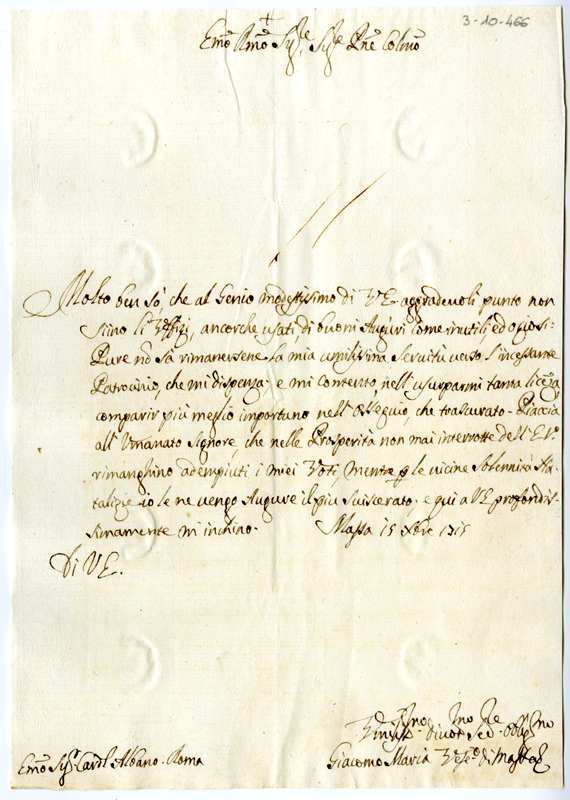 3-10-466
Emo Rmo Sigre, Sigre Pne Colmo
Molto ben sò, che al Genio modestissimo di VE aggradevoli punto non
siino li Uffizi, ancorche usati, di buoni Auguri come inutili, ed oziosi:
Pure nō sà rimanersene la mia umilissima servitù verso l'incessante
Patrocinio, che mi dispenza, e mi contento, nell'usurparmi tanta licēza,
comparir più meglio importuno nell'Ossequio, che trascurato. Piaccia
all'Umanato Signore, che nelle Prosperità non mai interrotte dell'E.V.
rimanghino adempiuti i miei Voti, mentre p le vicine Solennità Na-
talizie io le ne vengo Augure il più sviscerato, e qui a VE profondis-
simamente m'inchino. Massa 15 Xbre 1715
Di VE.
Umilss. Divot Ser. Obligmo
Emo Sigr Cardl Albano. Roma
Giacomo Maria Vesc. di